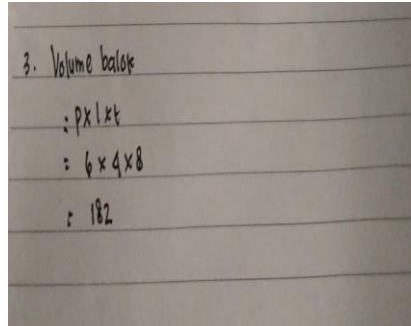 3. Volume balok
: p x l x t
= 6 x 4 x 8
: 182